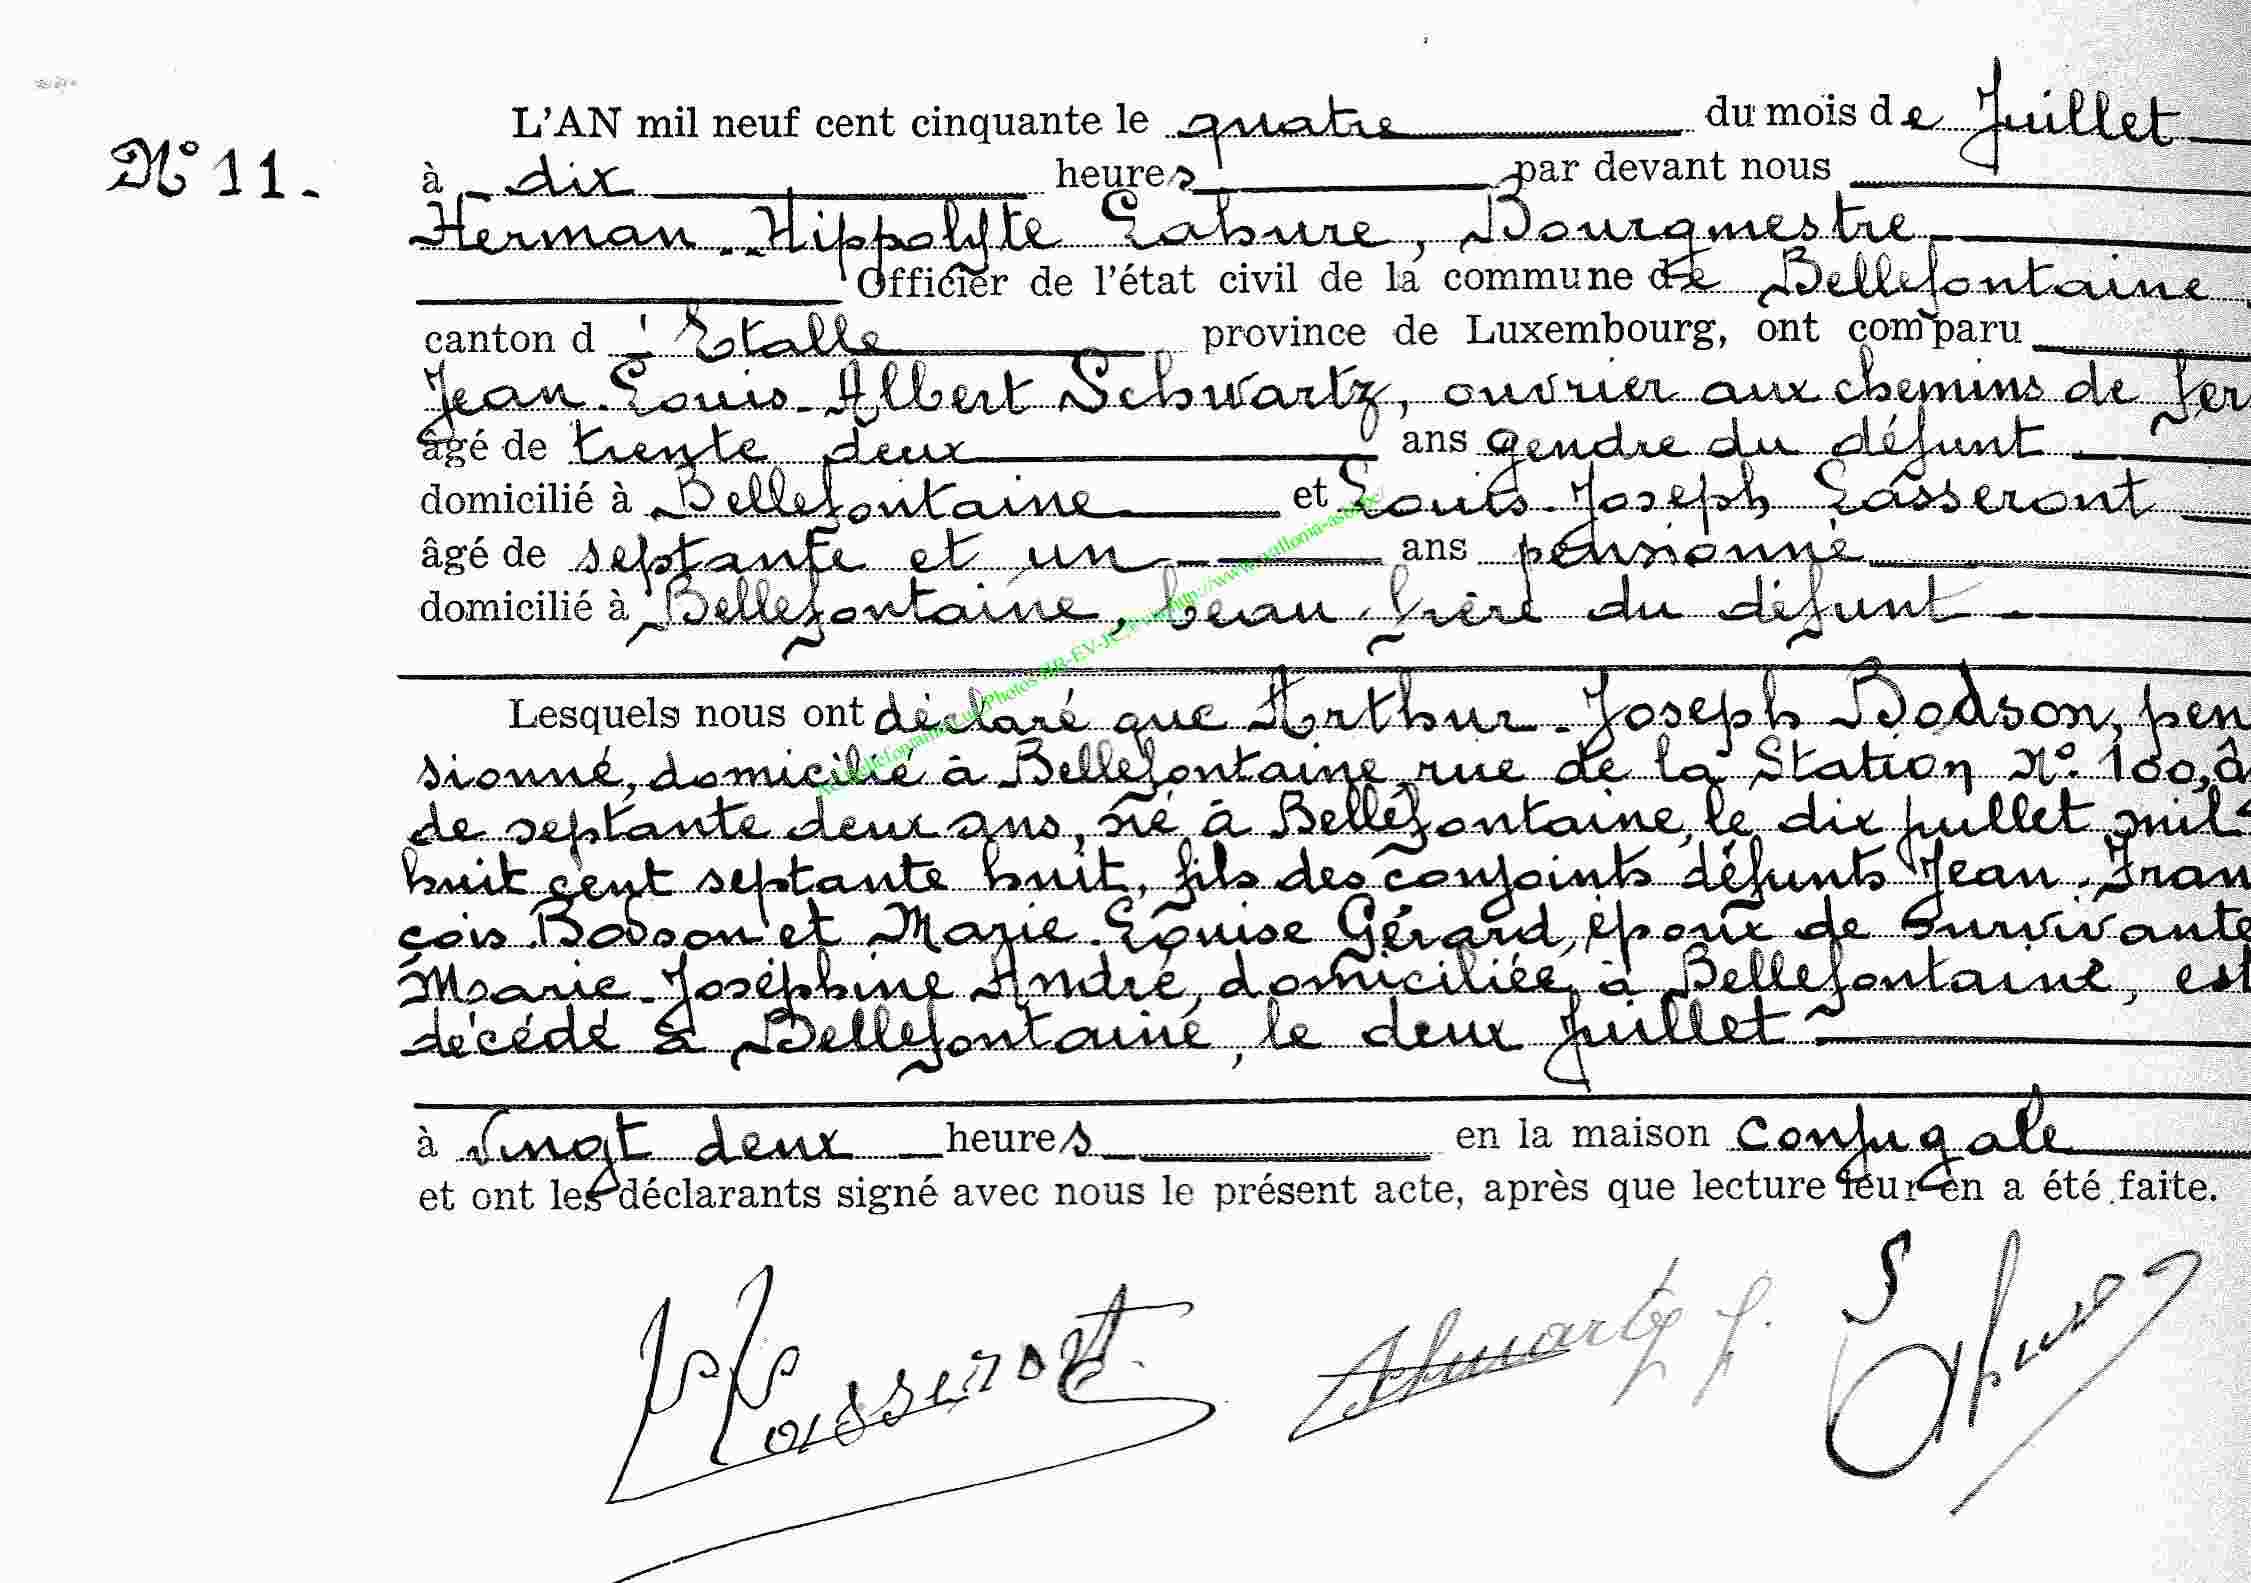 N° 11.
L'AN mil neuf cent cinquante le quatre du mois de Juillet
à dix heures par devant nous
Herman-Hippolyte Lahure, Bourgmestre
Officier de l'état civil de la commune de Bellefontaine
canton d'Etalle province de Luxembourg, ont comparu
Jean-Louis-Albert Schwartz, ouvrier aux chemins de fer
âgé de trente deux ans gendre du défunt
domicilié à Bellefontaine et Louis-Joseph Lasseront
âgé de septante et un ans pensionné
domicilié à Bellefontaine, beau-frère du défunt
Lesquels nous ont déclaré que Arthur-Joseph Bodson, pen
sionné, domicilié à Bellefontaine rue de la Station N° 100, â
de septante deux ans, né à Bellefontaine, le dix juillet mil
huit cent septante huit, fils des conjoints défunts Jean-Fran
çois Bodson et Marie-Louise Gérard, époux de survivante
Marie-Joséphine André, domiciliée à Bellefontaine, est
décédé à Bellefontaine, le deux Juillet
à vingt deux heures en la maison conjugale
et ont les déclarants signé avec nous le présent acte, après que lecture leur en a été faite.
Lasseront Schwartz J.